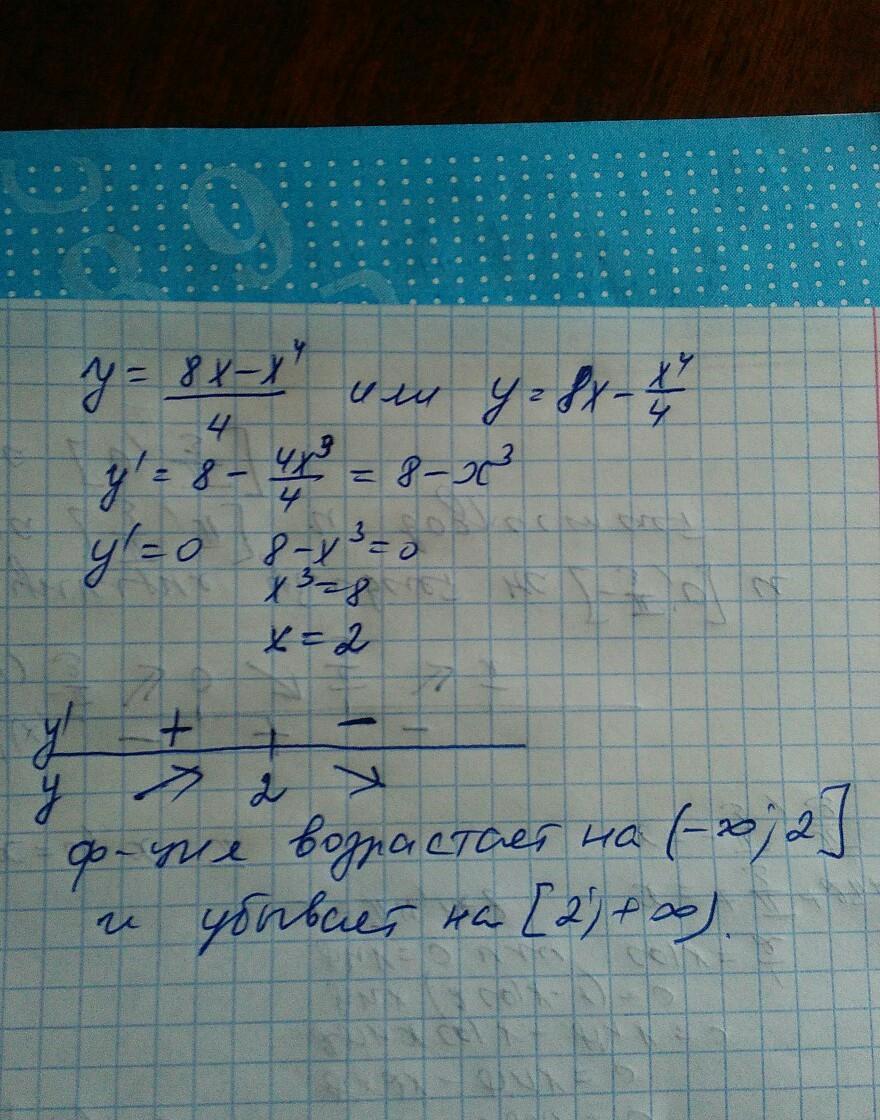 y = (8x-x⁴)/4 или y = 8x - x⁴/4
y' = 8 - 4x³/4 = 8 - x³
y' = 0 8 - x³ = 0
x³ = 8
x = 2
y' + -
y ↗ 2 ↘
ф-ция возрастает на (-∞; 2]
и убывает на [2; +∞).